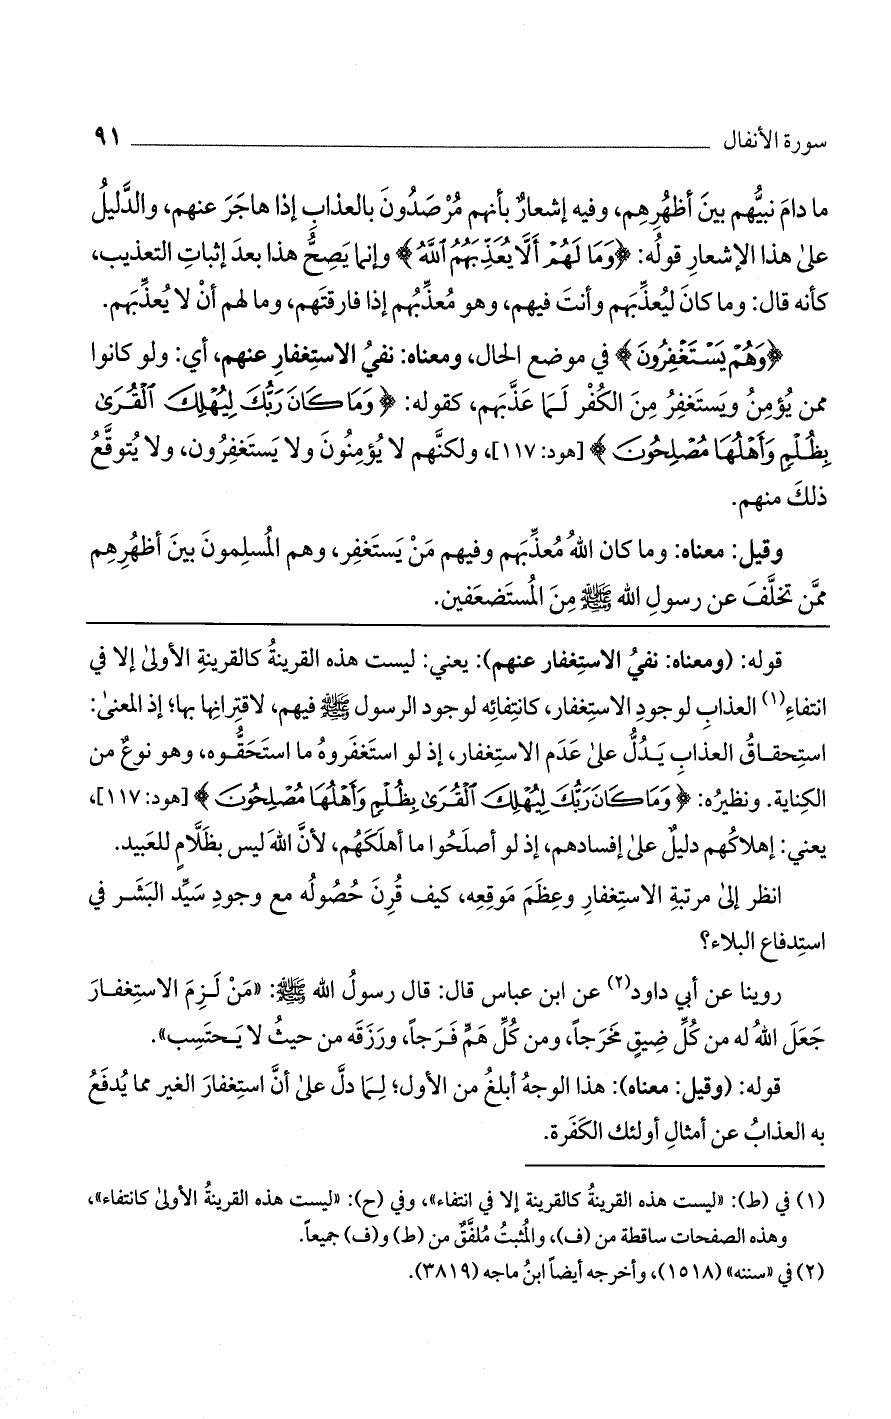 سورة الأنفال ٩١
ما دامَ نبيُّهم بينَ أظهُرِهِم، وفيه إشعارٌ بأنهم مُرْصَدُونَ بالعذابِ إذا هاجَرَ عنهم، والدَّليلُ
علىٰ هذا الإشعارِ قولُه: ﴿وَمَا لَهُمْ أَلَّا يُعَذِّبَهُمُ ٱللَّهُ﴾ وإنما يَصِحُّ هذا بعدَ إثباتِ التعذيب،
كأنه قال: وما كانَ ليُعذِّبَهم وأنتَ فيهم، وهو مُعذِّبُهم إذا فارقتَهم، وما لهم أنْ لا يُعذِّبَهم.
﴿وَهُمْ يَسْتَغْفِرُونَ﴾ في موضعِ الحال، ومعناه: نفيُ الاستِغفارِ عنهم، أي: ولو كانوا
ممن يُؤمِنُ ويَستَغفِرُ مِنَ الكُفْرِ لَـمَا عَذَّبَهم، كقوله: ﴿وَمَا كَانَ رَبُّكَ لِيُهْلِكَ ٱلْقُرَىٰ
بِظُلْمٍ وَأَهْلُهَا مُصْلِحُونَ﴾ [هود: ١١٧]، ولكنَّهم لا يُؤمِنُونَ ولا يَستَغفِرُون، ولا يُتوقَّعُ
ذلكَ منهم.
وقيل: معناه: وما كان اللهُ مُعذِّبَهم وفيهم مَنْ يَستَغفِر، وهم المُسلِمونَ بينَ أظهُرِهِم
ممَّن تخلَّفَ عن رسولِ الله ﷺ مِنَ المُستَضعَفين.
قوله: (ومعناه: نفيُ الاستِغفار عنهم): يعني: ليست هذه القرينةُ كالقرينةِ الأولىٰ إلا في
انتفاءِ(١) العذابِ لوجودِ الاستِغفار، كانتِفائِه لوجود الرسول ﷺ فيهم، لاقتِرانِها بها؛ إذ المعنىٰ:
استِحقاقُ العذابِ يَدُلُّ علىٰ عَدَمِ الاستِغفار، إذ لو استَغفَروهُ ما استَحَقُّوه، وهو نوعٌ من
الكِناية. ونظيرُه: ﴿وَمَا كَانَ رَبُّكَ لِيُهْلِكَ ٱلْقُرَىٰ بِظُلْمٍ وَأَهْلُهَا مُصْلِحُونَ﴾ [هود: ١١٧]،
يعني: إهلاكُهم دليلٌ علىٰ إفسادهم، إذ لو أصلَحُوا ما أهلَكَهُم، لأنَّ اللهَ ليس بظَلَّامٍ للعَبيد.
انظر إلىٰ مرتبةِ الاستِغفارِ وعِظَمَ مَوقِعِه، كيف قُرِنَ حُصُولُه مع وجودِ سَيِّد البَشَـر في
استِدفاع البلاء؟
روينا عن أبي داود(٢) عن ابن عباس قال: قال رسولُ الله ﷺ: «مَنْ لَـزِمَ الاستِغفـارَ
جَعَلَ اللهُ له من كُلِّ ضِيقٍ مَخرَجاً، ومن كُلِّ هَمٍّ فَـرَجاً، ورَزَقَه من حيثُ لا يَـحتَسِب».
قوله: (وقيل: معناه): هذا الوجهُ أبلغُ من الأول؛ لِـمَا دلَّ علىٰ أنَّ استِغفارَ الغيرِ مما يُدفَعُ
به العذابُ عن أمثالِ أولئك الكَفَرة.
(١) في (ط): «ليست هذه القرينةُ كالقرينة إلا في انتفاء»، وفي (ح): «ليست هذه القرينةُ الأولىٰ كانتفاء»،
وهذه الصفحات ساقطة من (ف)، والمُثبتُ مُلفَّقٌ من (ط) و(ف) جميعاً.
(٢) في «سننه» (١٥١٨)، وأخرجه أيضاً ابنُ ماجه (٣٨١٩).